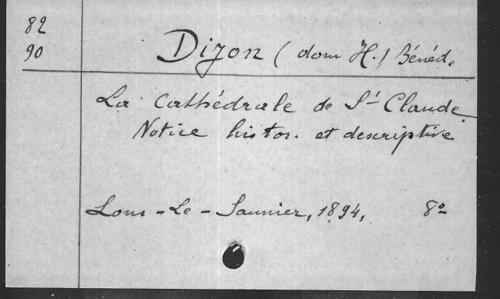 82
90
Dijon (dom H.) Bénéd.
La Cathédrale de St Claude
Notice histor. et descriptive
Lons-Le-Saunier, 1894, 8º